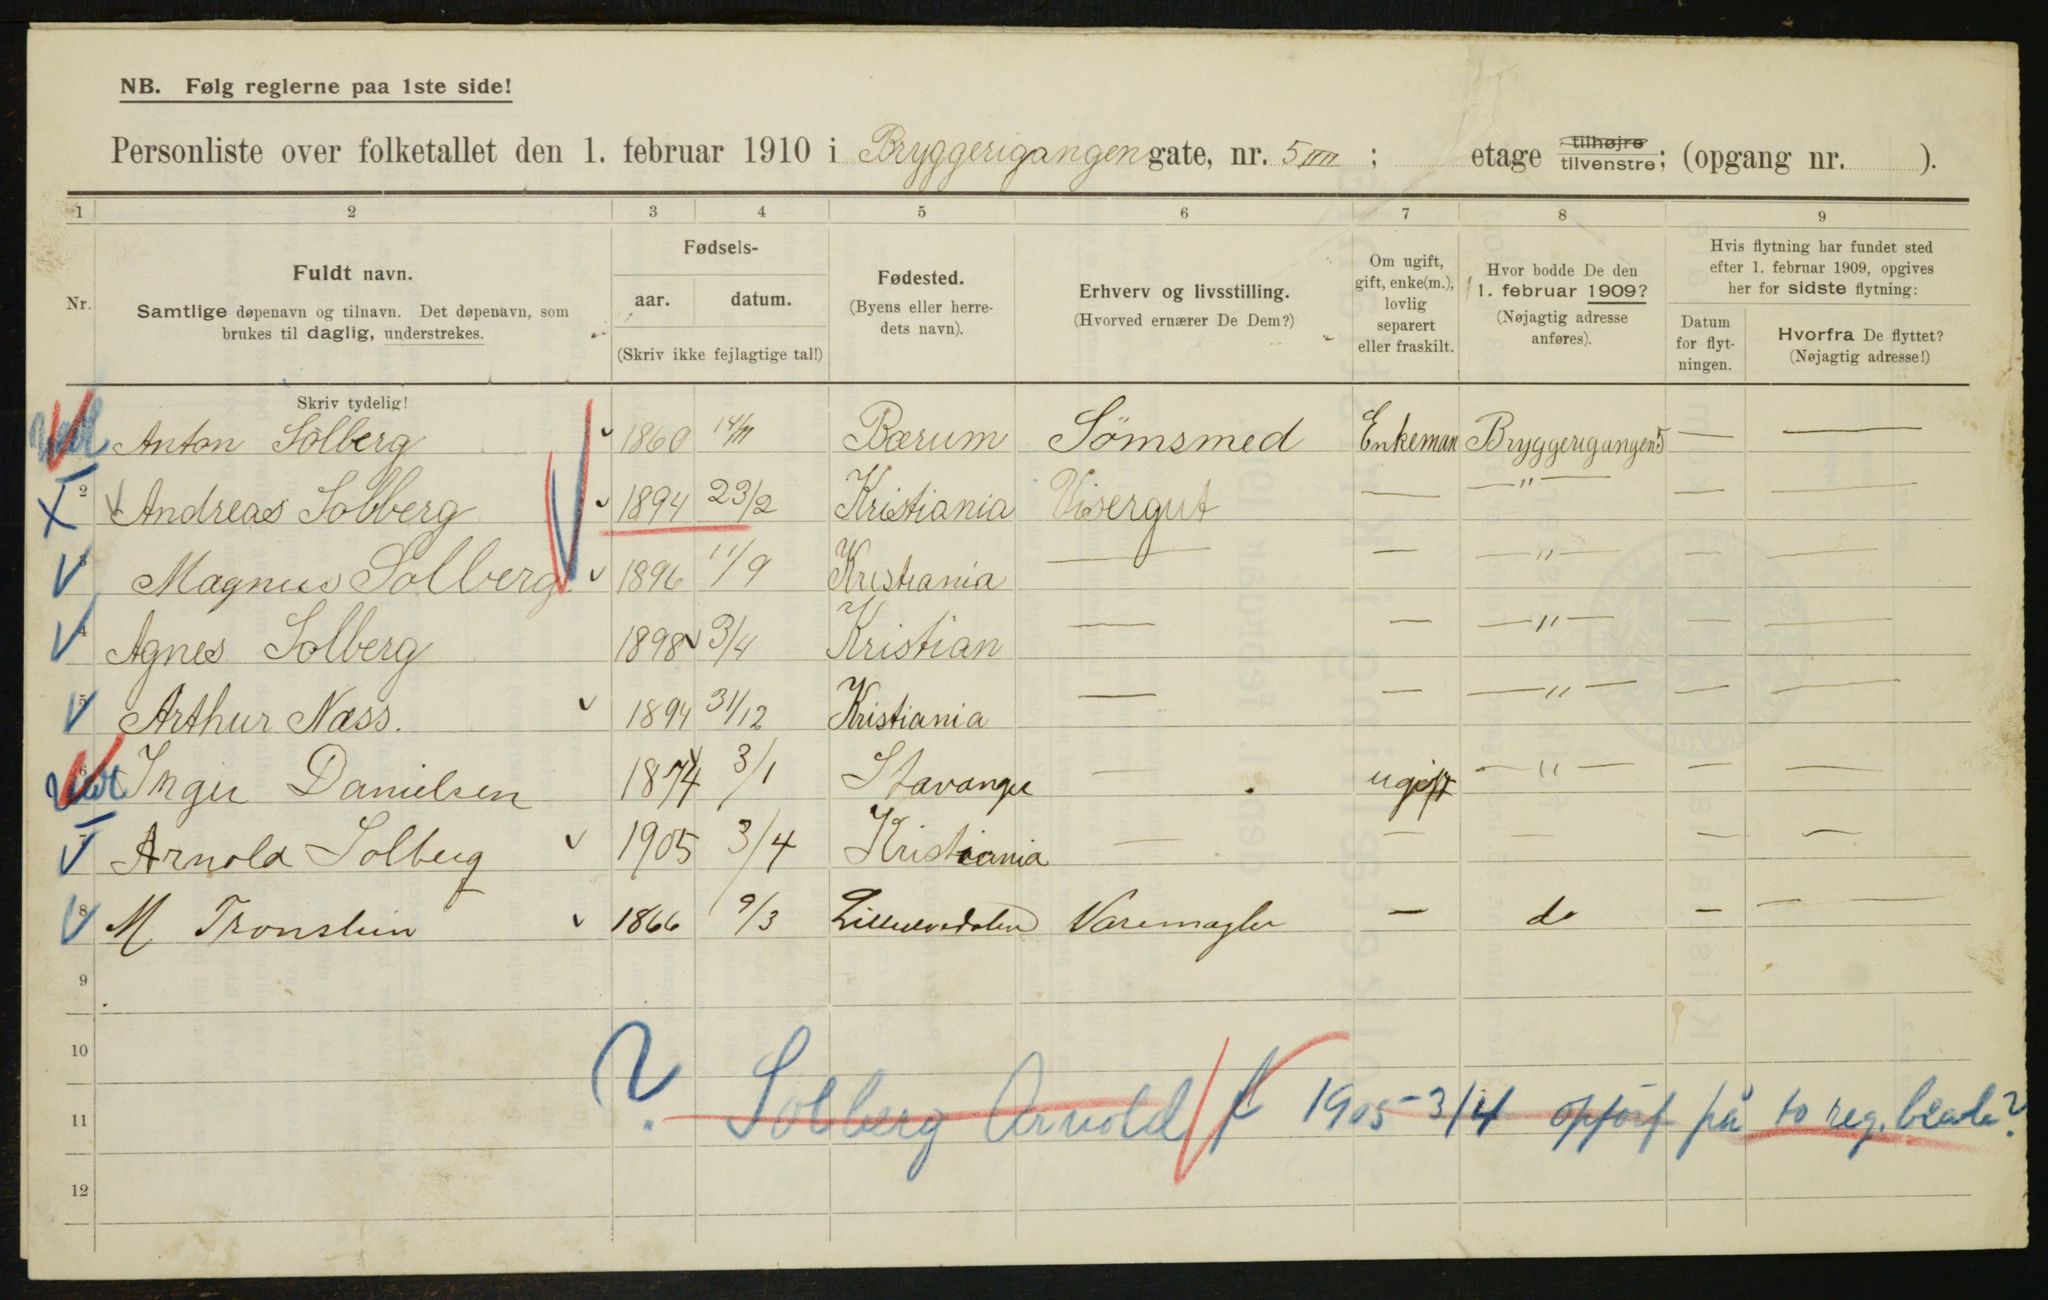 NB. Følg reglerne paa 1ste side!
Personliste over folketallet den 1. februar 1910 i Bryggerigangen gate, nr. 5 III ; etage tilhøjre tilvenstre; (opgang nr. ).
1 2 3 4 5 6 7 8 9
Nr.
Fuldt navn.
Samtlige døpenavn og tilnavn. Det døpenavn, som
brukes til daglig, understrekes.
Skriv tydelig!
Fødsels-
aar. datum.
(Skriv ikke fejlagtige tal!)
Fødested.
(Byens eller herre-
dets navn).
Erhverv og livsstilling.
(Hvorved ernærer De Dem?)
Om ugift,
gift, enke(m.),
lovlig
separert
eller fraskilt.
Hvor bodde De den
1. februar 1909?
(Nøjagtig adresse
anføres).
Hvis flytning har fundet sted
efter 1. februar 1909, opgives
her for sidste flytning:
Datum
for flyt-
ningen.
Hvorfra De flyttet?
(Nøjagtig adresse!)
Anton Solberg 1860 14/11 Bærum Sömsmed Enkeman Bryggerigangen 5 — —
2 Andreas Solberg 1894 23/2 Kristiania Visergut — —"— — —
3 Magnus Solberg 1896 11/9 Kristiania — — —"— — —
4 Agnes Solberg 1898 3/4 Kristian — — —"— — —
5 Arthur Næss. 1894 31/12 Kristiania — — —"— — —
6 Inger Danielsen 1874 3/1 Stavanger — ugift —"— — —
7 Arnold Solberg 1905 3/4 Kristiania — — — — —
8 M Tronslien 1866 9/3 Lilleelvedalen Varemægler — do — — —
9
10
11 ? Solberg Arnold f 1905 3/4 opført på to reg. blade?
12